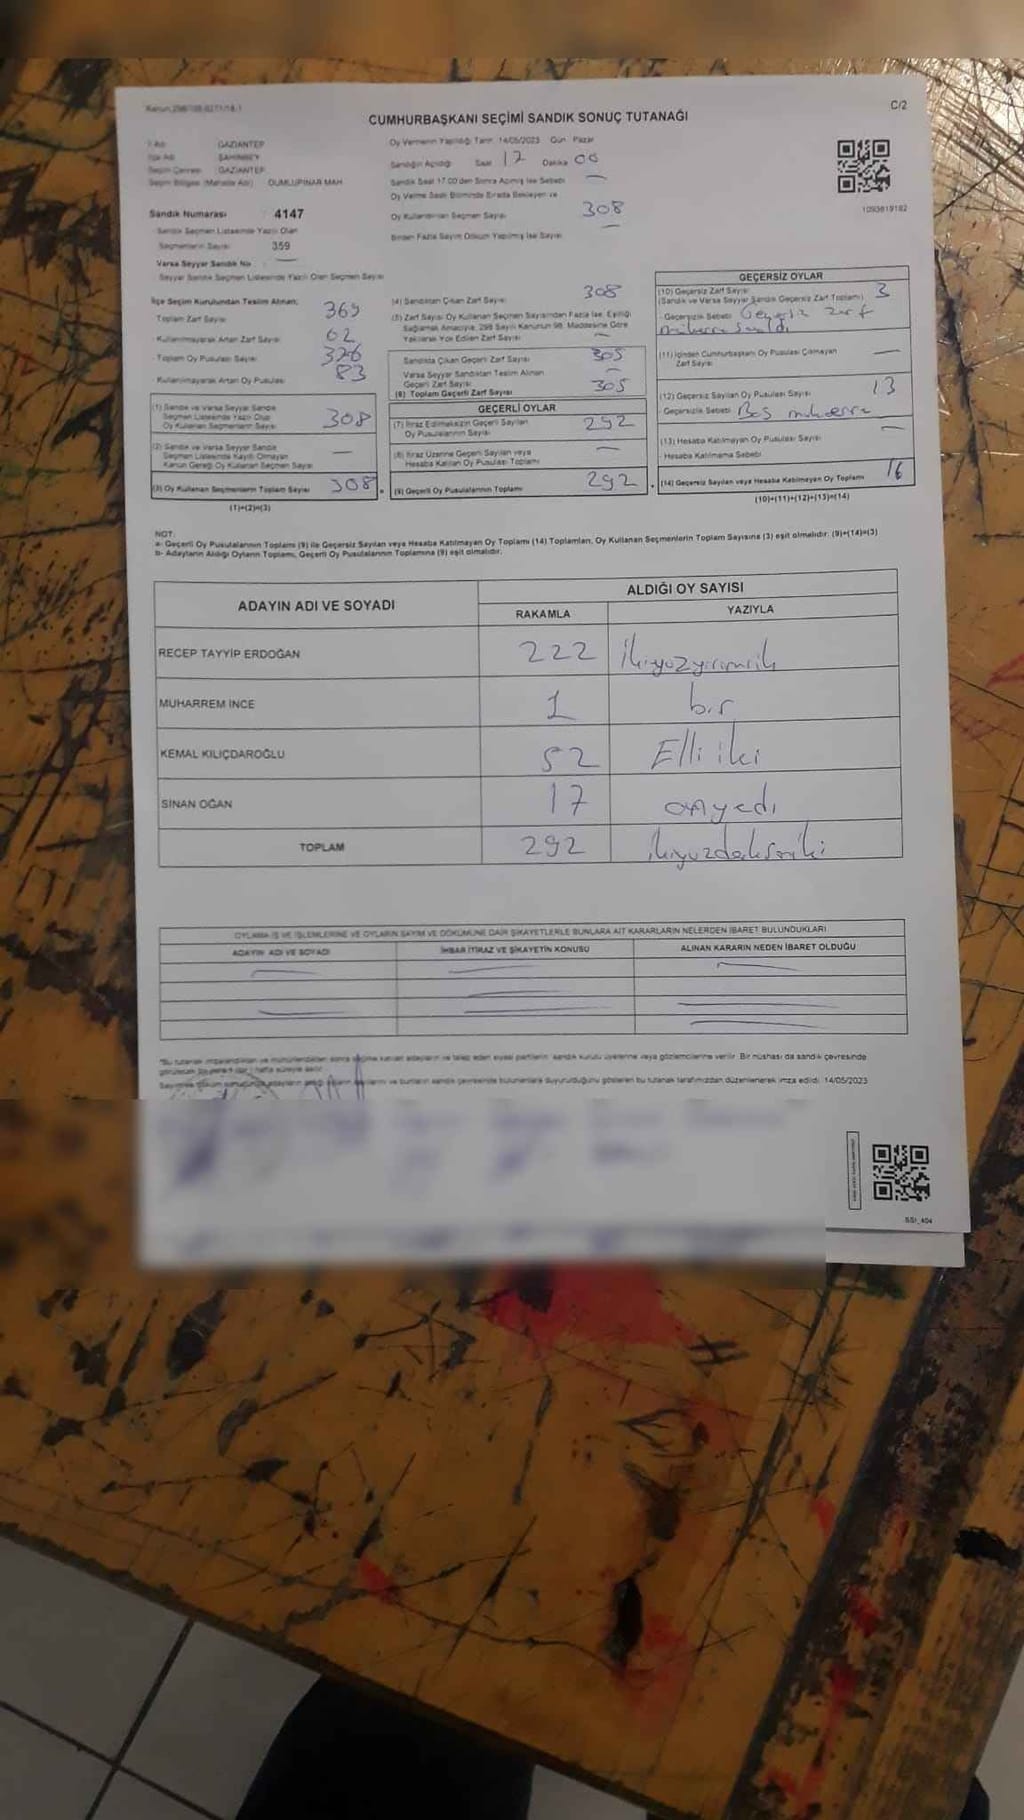 C/2
CUMHURBAŞKANI SEÇİMİ SANDIK SONUÇ TUTANAĞI
İl Adı GAZİANTEP
İlçe Adı ŞAHİNBEY
Seçim Çevresi GAZİANTEP
Seçim Bölgesi (Mahalle Adı) DUMLUPINAR MAH
Sandık Numarası 4147
Sandık Seçmen Listesinde Yazılı Olan
Seçmenlerin Sayısı 359
Varsa Seyyar Sandık No —
Seyyar Sandık Seçmen Listesinde Yazılı Olan Seçmen Sayısı
Oy Vermenin Yapıldığı Tarih 14/05/2023 Gün Pazar
Sandığın Açıldığı Saat 17 Dakika 00
Sandık Saat 17.00'den Sonra Açılmış İse Sebebi —
Oy Verme Saati Bitiminde Sırada Bekleyen ve
Oy Kullandırılan Seçmen Sayısı 308
Birden Fazla Sayım Döküm Yapılmış İse Sayısı —
1093619182
İlçe Seçim Kurulundan Teslim Alınan;
Toplam Zarf Sayısı 369
Kullanılmayarak Artan Zarf Sayısı 62
Toplam Oy Pusulası Sayısı
Kullanılmayarak Artan Oy Pusulası 83
(1) Sandık ve Varsa Seyyar Sandık
Seçmen Listesinde Yazılı Olup
Oy Kullanan Seçmenlerin Sayısı 308
(2) Sandık ve Varsa Seyyar Sandık
Seçmen Listesinde Kayıtlı Olmayan
Kanun Gereği Oy Kullanan Seçmen Sayısı —
(3) Oy Kullanan Seçmenlerin Toplam Sayısı 308
(1)+(2)=(3)
(4) Sandıktan Çıkan Zarf Sayısı 308
(5) Zarf Sayısı Oy Kullanan Seçmen Sayısından Fazla İse, Eşitliği
Sağlamak Amacıyla, 298 Sayılı Kanunun 98. Maddesine Göre
Yakılarak Yok Edilen Zarf Sayısı —
Sandıkta Çıkan Geçerli Zarf Sayısı 305
Varsa Seyyar Sandıktan Teslim Alınan
Geçerli Zarf Sayısı —
(6) Toplam Geçerli Zarf Sayısı 305
GEÇERLİ OYLAR
(7) İtiraz Edilmeksizin Geçerli Sayılan
Oy Pusulalarının Sayısı 292
(8) İtiraz Üzerine Geçerli Sayılan veya
Hesaba Katılan Oy Pusulası Toplamı —
(9) Geçerli Oy Pusulalarının Toplamı 292
GEÇERSİZ OYLAR
(10) Geçersiz Zarf Sayısı 3
(Sandık ve Varsa Seyyar Sandık Geçersiz Zarf Toplamı)
- Geçersizlik Sebebi Geçersiz zarf
(11) İçinden Cumhurbaşkanı Oy Pusulası Çıkmayan
Zarf Sayısı —
(12) Geçersiz Sayılan Oy Pusulası Sayısı 13
- Geçersizlik Sebebi Boş
(13) Hesaba Katılmayan Oy Pusulası Sayısı —
- Hesaba Katılmama Sebebi
(14) Geçersiz Sayılan veya Hesaba Katılmayan Oy Toplamı 16
(10)+(11)+(12)+(13)=(14)
NOT:
a- Geçerli Oy Pusulalarının Toplamı (9) ile Geçersiz Sayılan veya Hesaba Katılmayan Oy Toplamı (14) Toplamları, Oy Kullanan Seçmenlerin Toplam Sayısına (3) eşit olmalıdır. (9)+(14)=(3)
b- Adayların Aldığı Oyların Toplamı, Geçerli Oy Pusulalarının Toplamına (9) eşit olmalıdır.
ADAYIN ADI VE SOYADI ALDIĞI OY SAYISI
RAKAMLA YAZIYLA
RECEP TAYYİP ERDOĞAN 222 ikiyüzyirmiiki
MUHARREM İNCE 1 bir
KEMAL KILIÇDAROĞLU 52 Elli iki
SİNAN OĞAN 17 onyedi
TOPLAM 292 ikiyüzdoksaniki
OYLAMA İŞ VE İŞLEMLERİNE VE OYLARIN SAYIM VE DÖKÜMÜNE DAİR ŞİKAYETLERLE BUNLARA AİT KARARLARIN NELERDEN İBARET BULUNDUKLARI
ADAYIN ADI VE SOYADI İHBAR İTİRAZ VE ŞİKAYETİN KONUSU ALINAN KARARIN NEDEN İBARET OLDUĞU
sandık kurulu üyelerine veya gözlemcilerine verilir. Bir nüshası da sandık çevresinde
ve bunların sandık çevresinde bulunanlara duyurulduğunu gösteren bu tutanak tarafımızdan düzenlenerek imza edildi. 14/05/2023
SSt_404